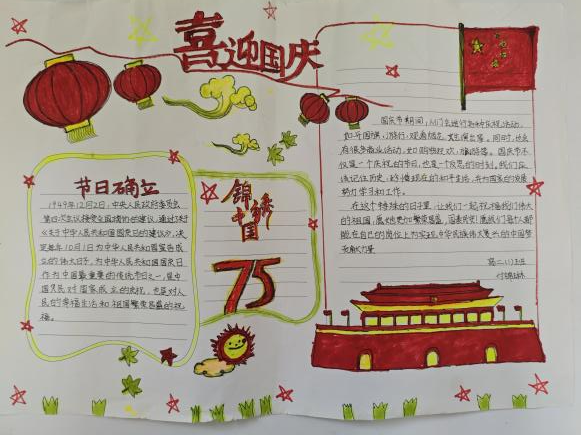 喜迎国庆
节日确立
1949年12月2日,中央人民政府委员会
第四次会议接受全国政协的建议,通过了
《关于中华人民共和国国庆日的决议》,决
定每年10月1日为中华人民共和国宣告成
立的伟大日子,为中华人民共和国国庆日
作为中国最重要的传统节日之一,是中
国人民对国家成立的庆祝,也是对人
民的幸福生活和祖国繁荣昌盛的祝
福。
锦绣
中国
75
国庆节期间,人们会进行各种庆祝活动,
如升国旗,游行,观看烟花,文艺演出等。同时,还会
有很多商业活动,如购物狂欢,旅游等。国庆节不
仅是一个庆祝的节日,也是一个反思的时刻。我们应
该记住历史,珍惜现在的和平生活,并为国家的发展
努力学习和工作。
在这个特殊的日子里,让我们一起祝福我们伟大
的祖国,愿她更加繁荣昌盛,国泰民安!愿我们每个人都
能在自己的岗位上为实现中华民族伟大复兴的中国梦
贡献力量
高二(1)班